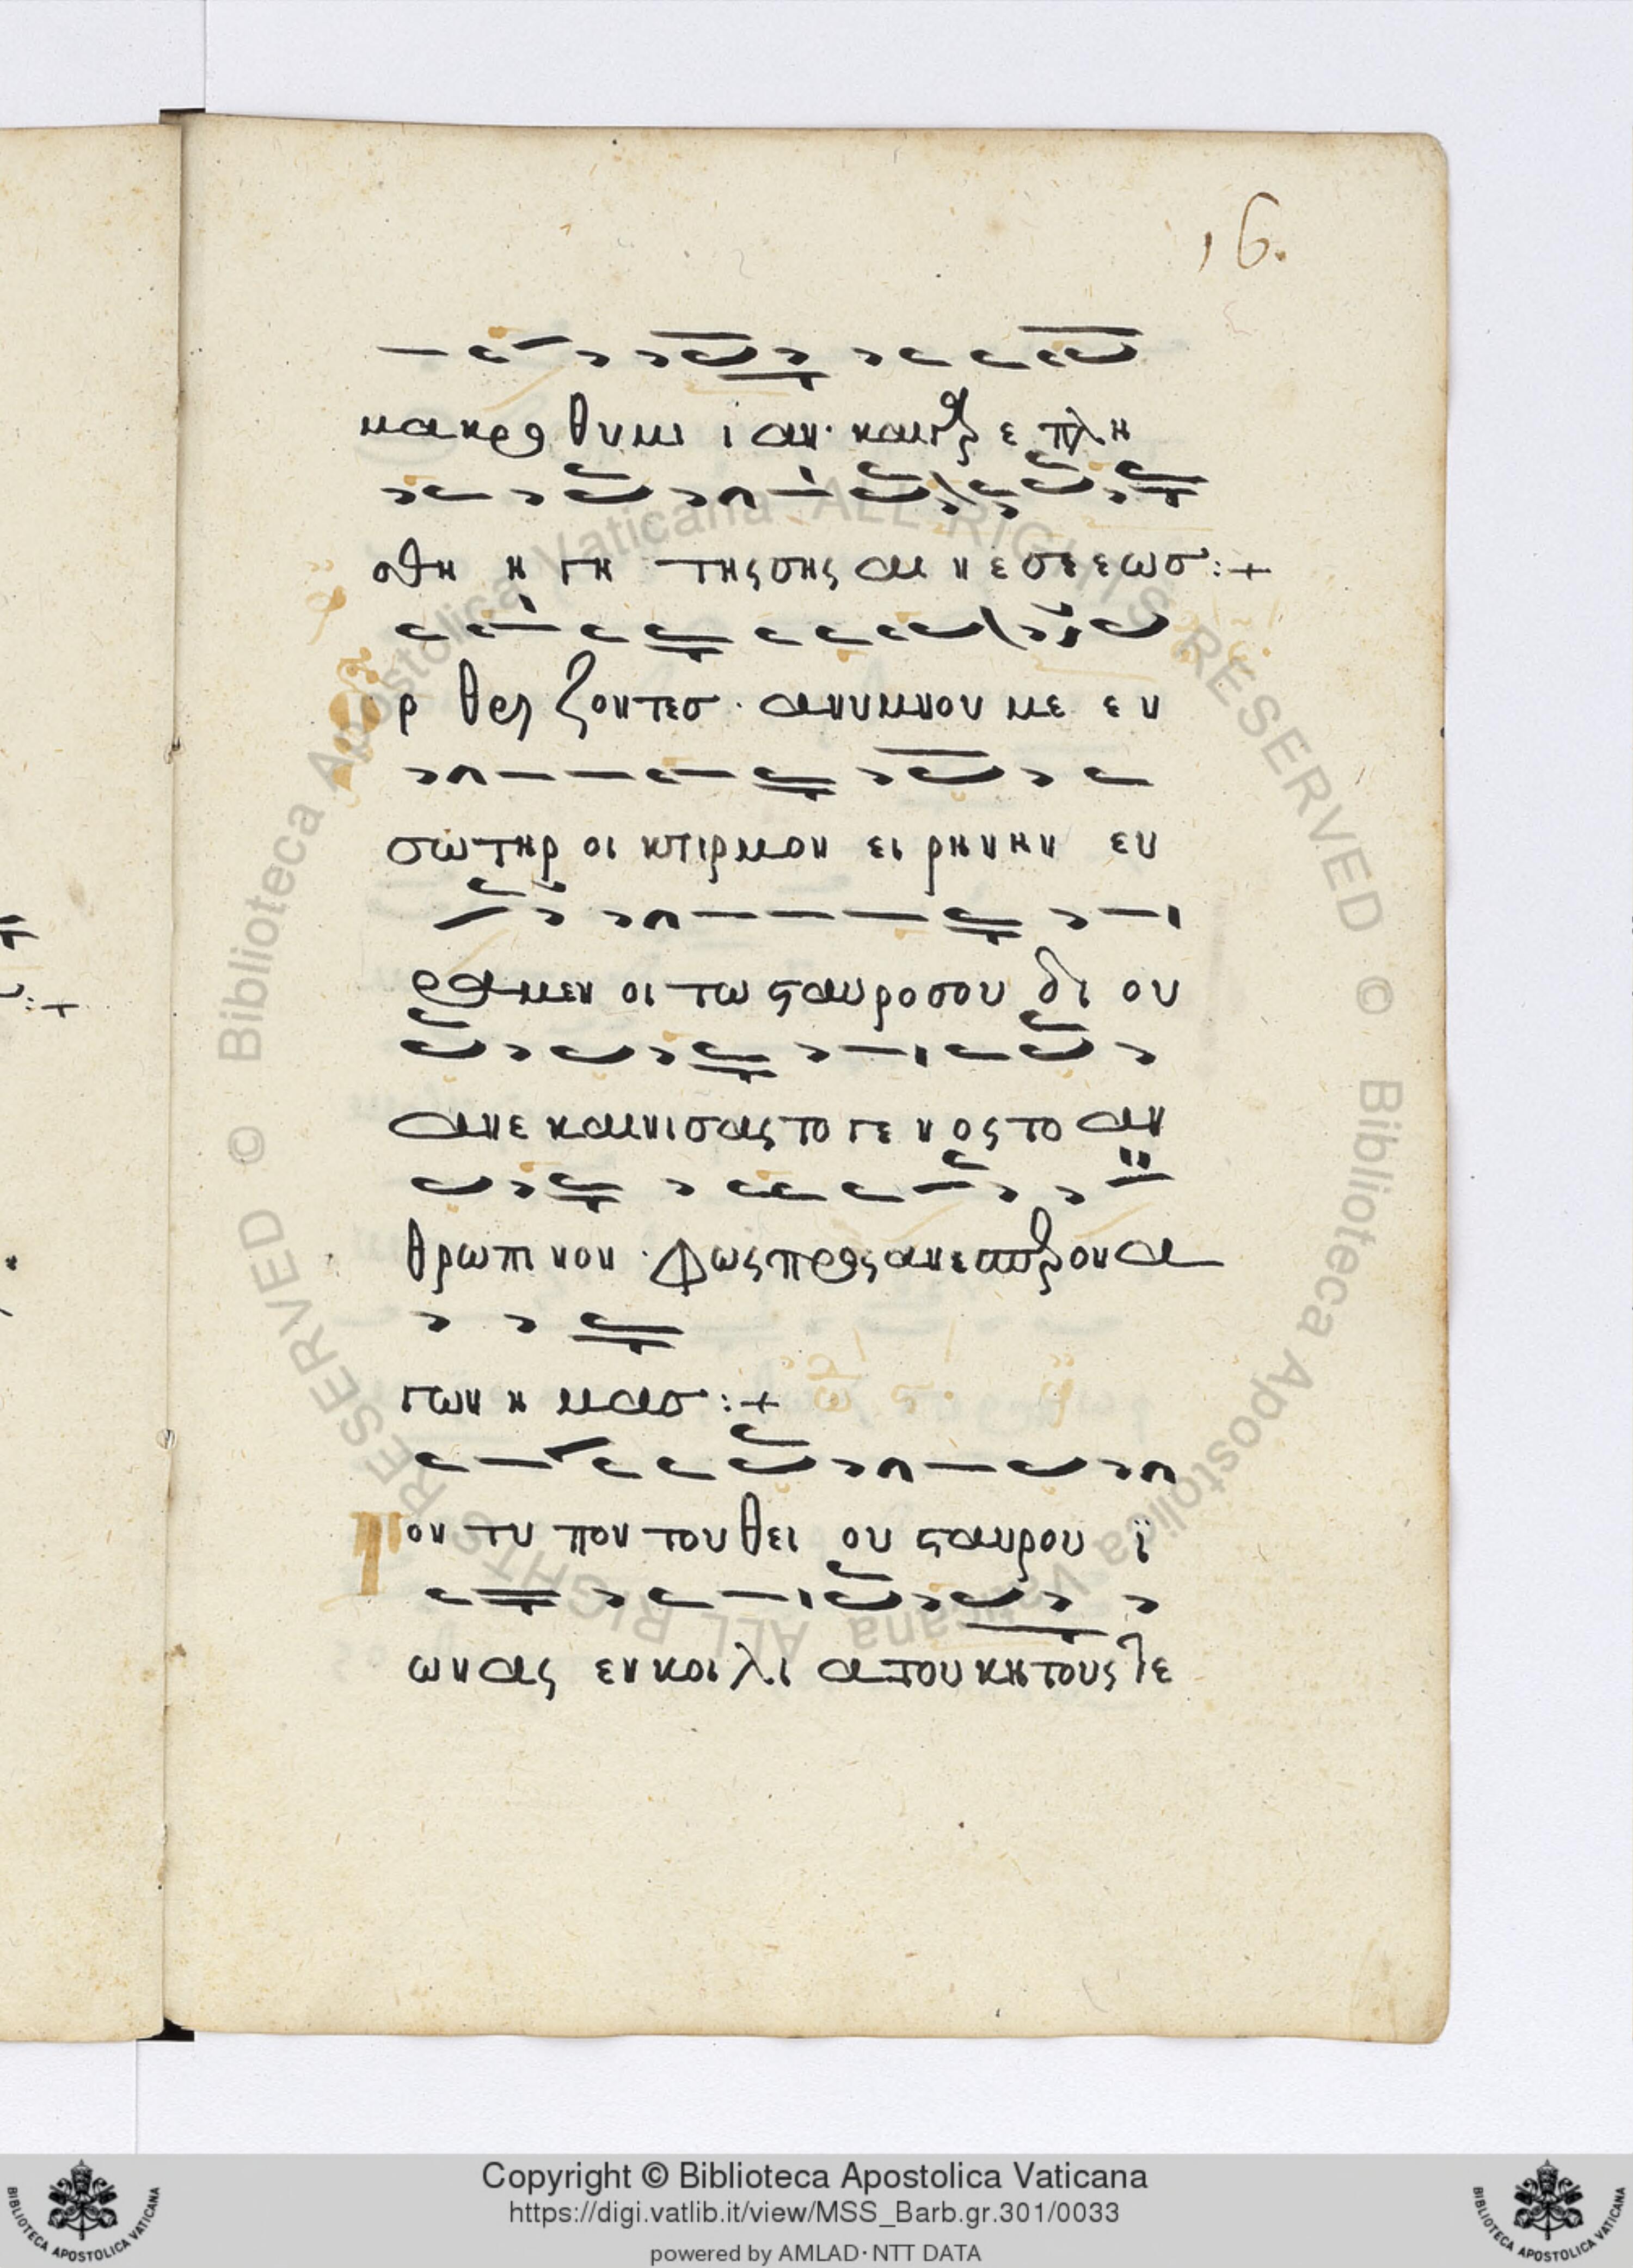 16.
μακρο θυμι ι αν· και της ε πλη
σθη η γη της σης αι νε σε ε ωσ:+
ρ θρι ζοντεσ · ανυμνου με εν
σωτηρ οι κτιρμον ει ρηνην εν
ραμεν οι τω ςαυρο σου δι ου
ανε καινισας το γε νος το αν
θρωπι νον · φως προς ανεσπερον α
γων η μασ:+
Τον τυ πον του θει ου ςαυρου ϊ
ωνας εν κοι λι α του κητους τε
© Biblioteca Apostolica Vaticana ALL RIGHTS RESERVED © Biblioteca Apostolica Vaticana ALL RIGHTS RESERVED
Copyright © Biblioteca Apostolica Vaticana
https://digi.vatlib.it/view/MSS_Barb.gr.301/0033
powered by AMLAD·NTT DATA
BIBLIOTECA APOSTOLICA VATICANA
BIBLIOTECA APOSTOLICA VATICANA